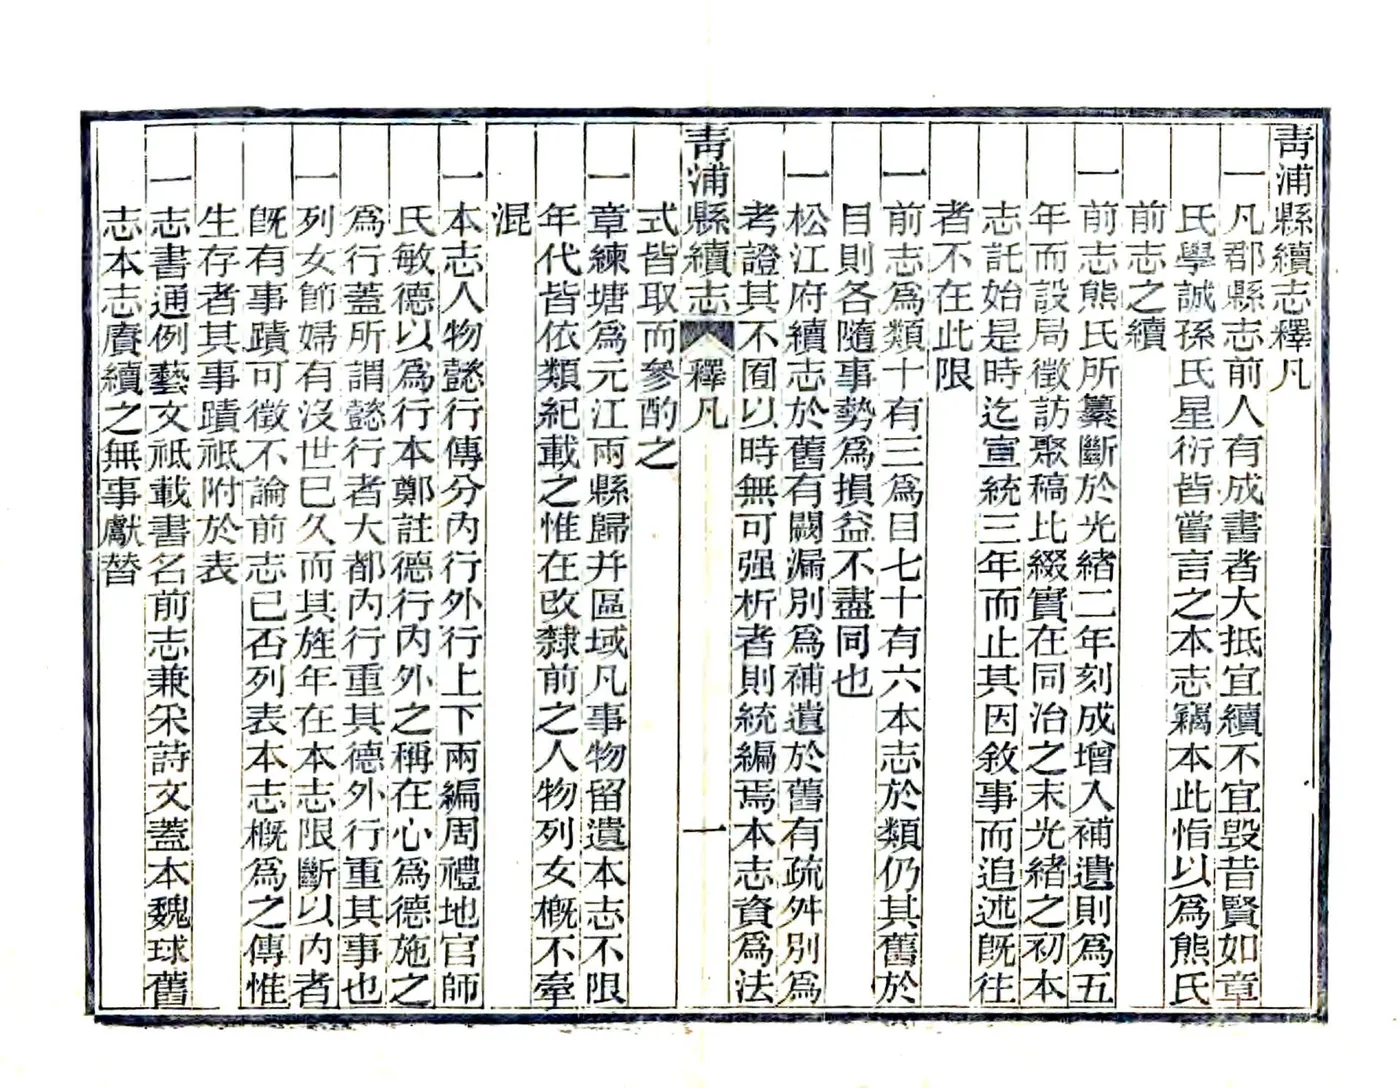 青浦縣續志釋凡
一凡郡縣志前人有成書者大抵宜續不宜毀昔賢如章
氏學誠孫氏星衍皆嘗言之本志竊本此恉以爲熊氏
前志之續
一前志熊氏所纂斷於光緒二年刻成增入補遺則爲五
年而設局徵訪聚稿比綴實在同治之末光緒之初本
志託始是時迄宣統三年而止其因敘事而追述旣往
者不在此限
一前志爲類十有三爲目七十有六本志於類仍其舊於
目則各隨事勢爲損益不盡同也
一松江府續志於舊有闕漏別爲補遺於舊有疏舛別爲
考證其不囿以時無可强析者則統編焉本志資爲法
青浦縣續志 釋凡 一
式皆取而參酌之
一章練塘爲元江兩縣歸并區域凡事物留遺本志不限
年代皆依類紀載之惟在改隸前之人物列女槪不牽
混
一本志人物懿行傳分內行外行上下兩編周禮地官師
氏敏德以爲行本鄭註德行內外之稱在心爲德施之
爲行蓋所謂懿行者大都內行重其德外行重其事也
一列女節婦有沒世已久而其旌年在本志限斷以內者
旣有事蹟可徵不論前志已否列表本志槪爲之傳惟
生存者其事蹟祇附於表
一志書通例藝文祇載書名前志兼采詩文蓋本魏球舊
志本志賡續之無事獻替